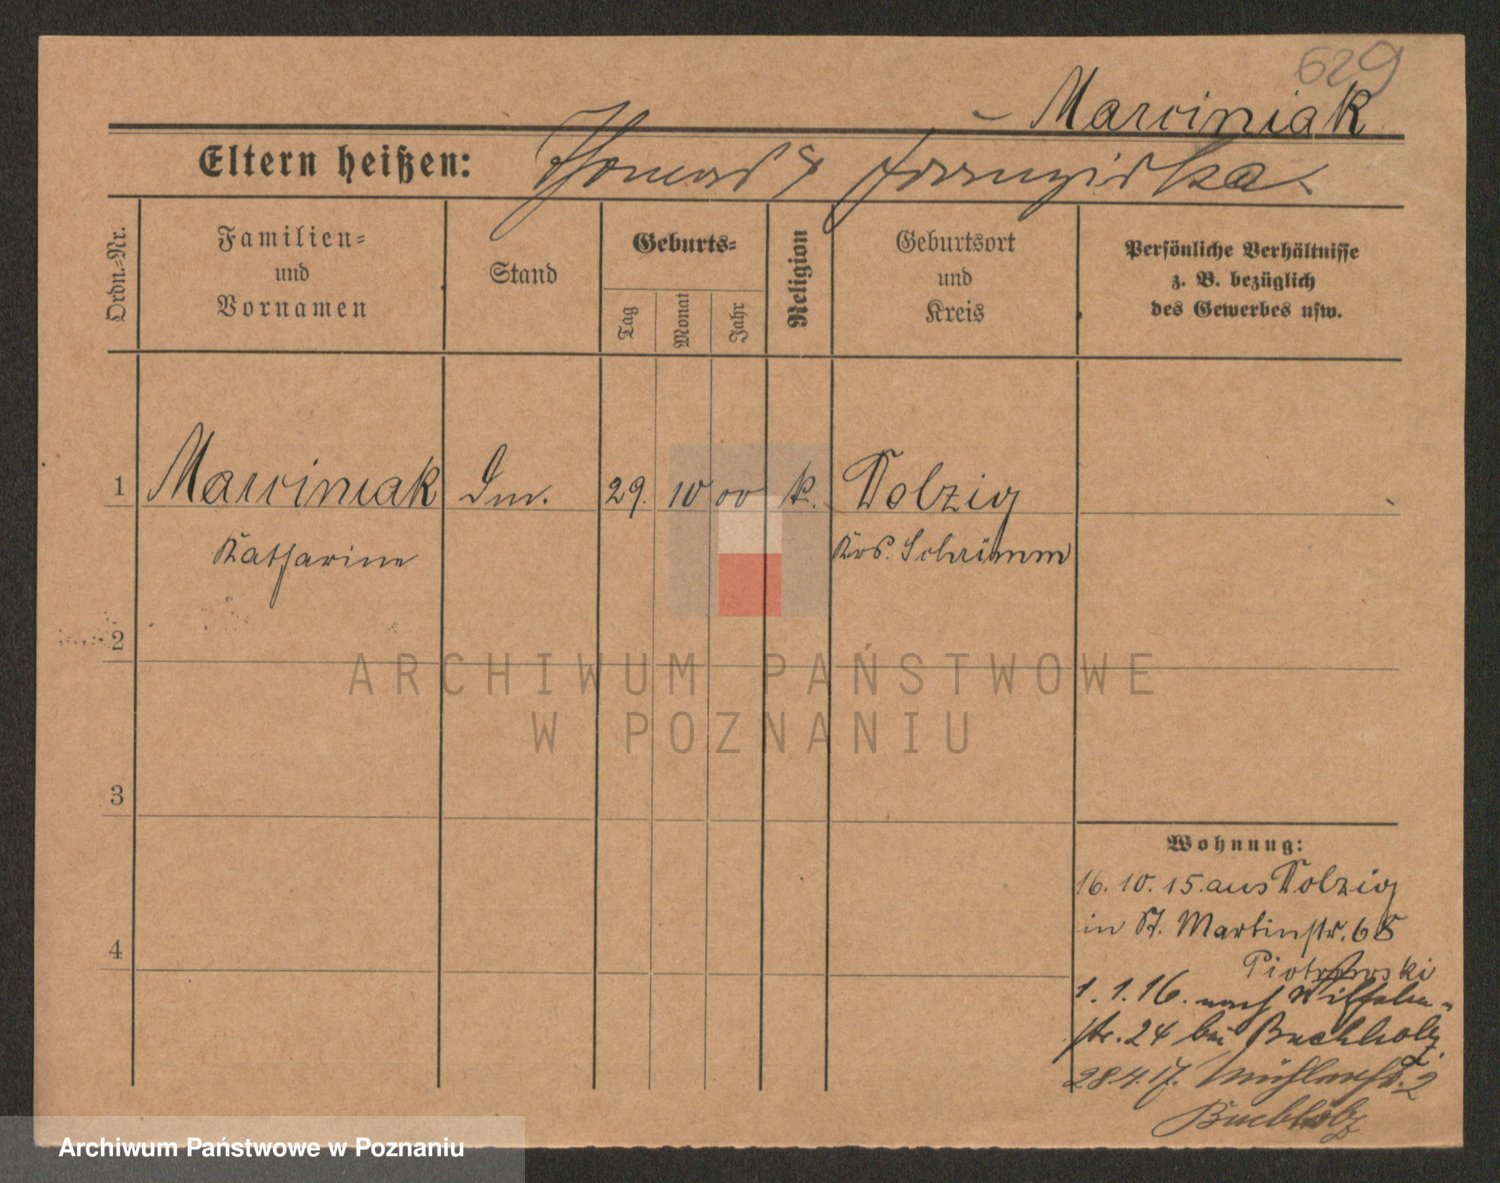 629
Marciniak
Eltern heißen: Thomas & Franziska
Ordn.-Nr.
Familien-
und
Vornamen
Stand
Geburts-
Tag
Monat
Jahr
Religion
Geburtsort
und
Kreis
Persönliche Verhältnisse
z. B. bezüglich
des Gewerbes usw.
1 Marciniak 29. 10 00 k. Dolzig
Katharine Krs. Schrimm
2
ARCHIWUM PAŃSTWOWE
W POZNANIU
3
4
Wohnung:
16. 10. 15. aus Dolzig
in St. Martinstr. 68
Piotrowski
1. 1. 16. nach Wilhelm-
str. 24 bei Buchholz
28.4.17. Mühlenstr. 2
Buchholz
Archiwum Państwowe w Poznaniu